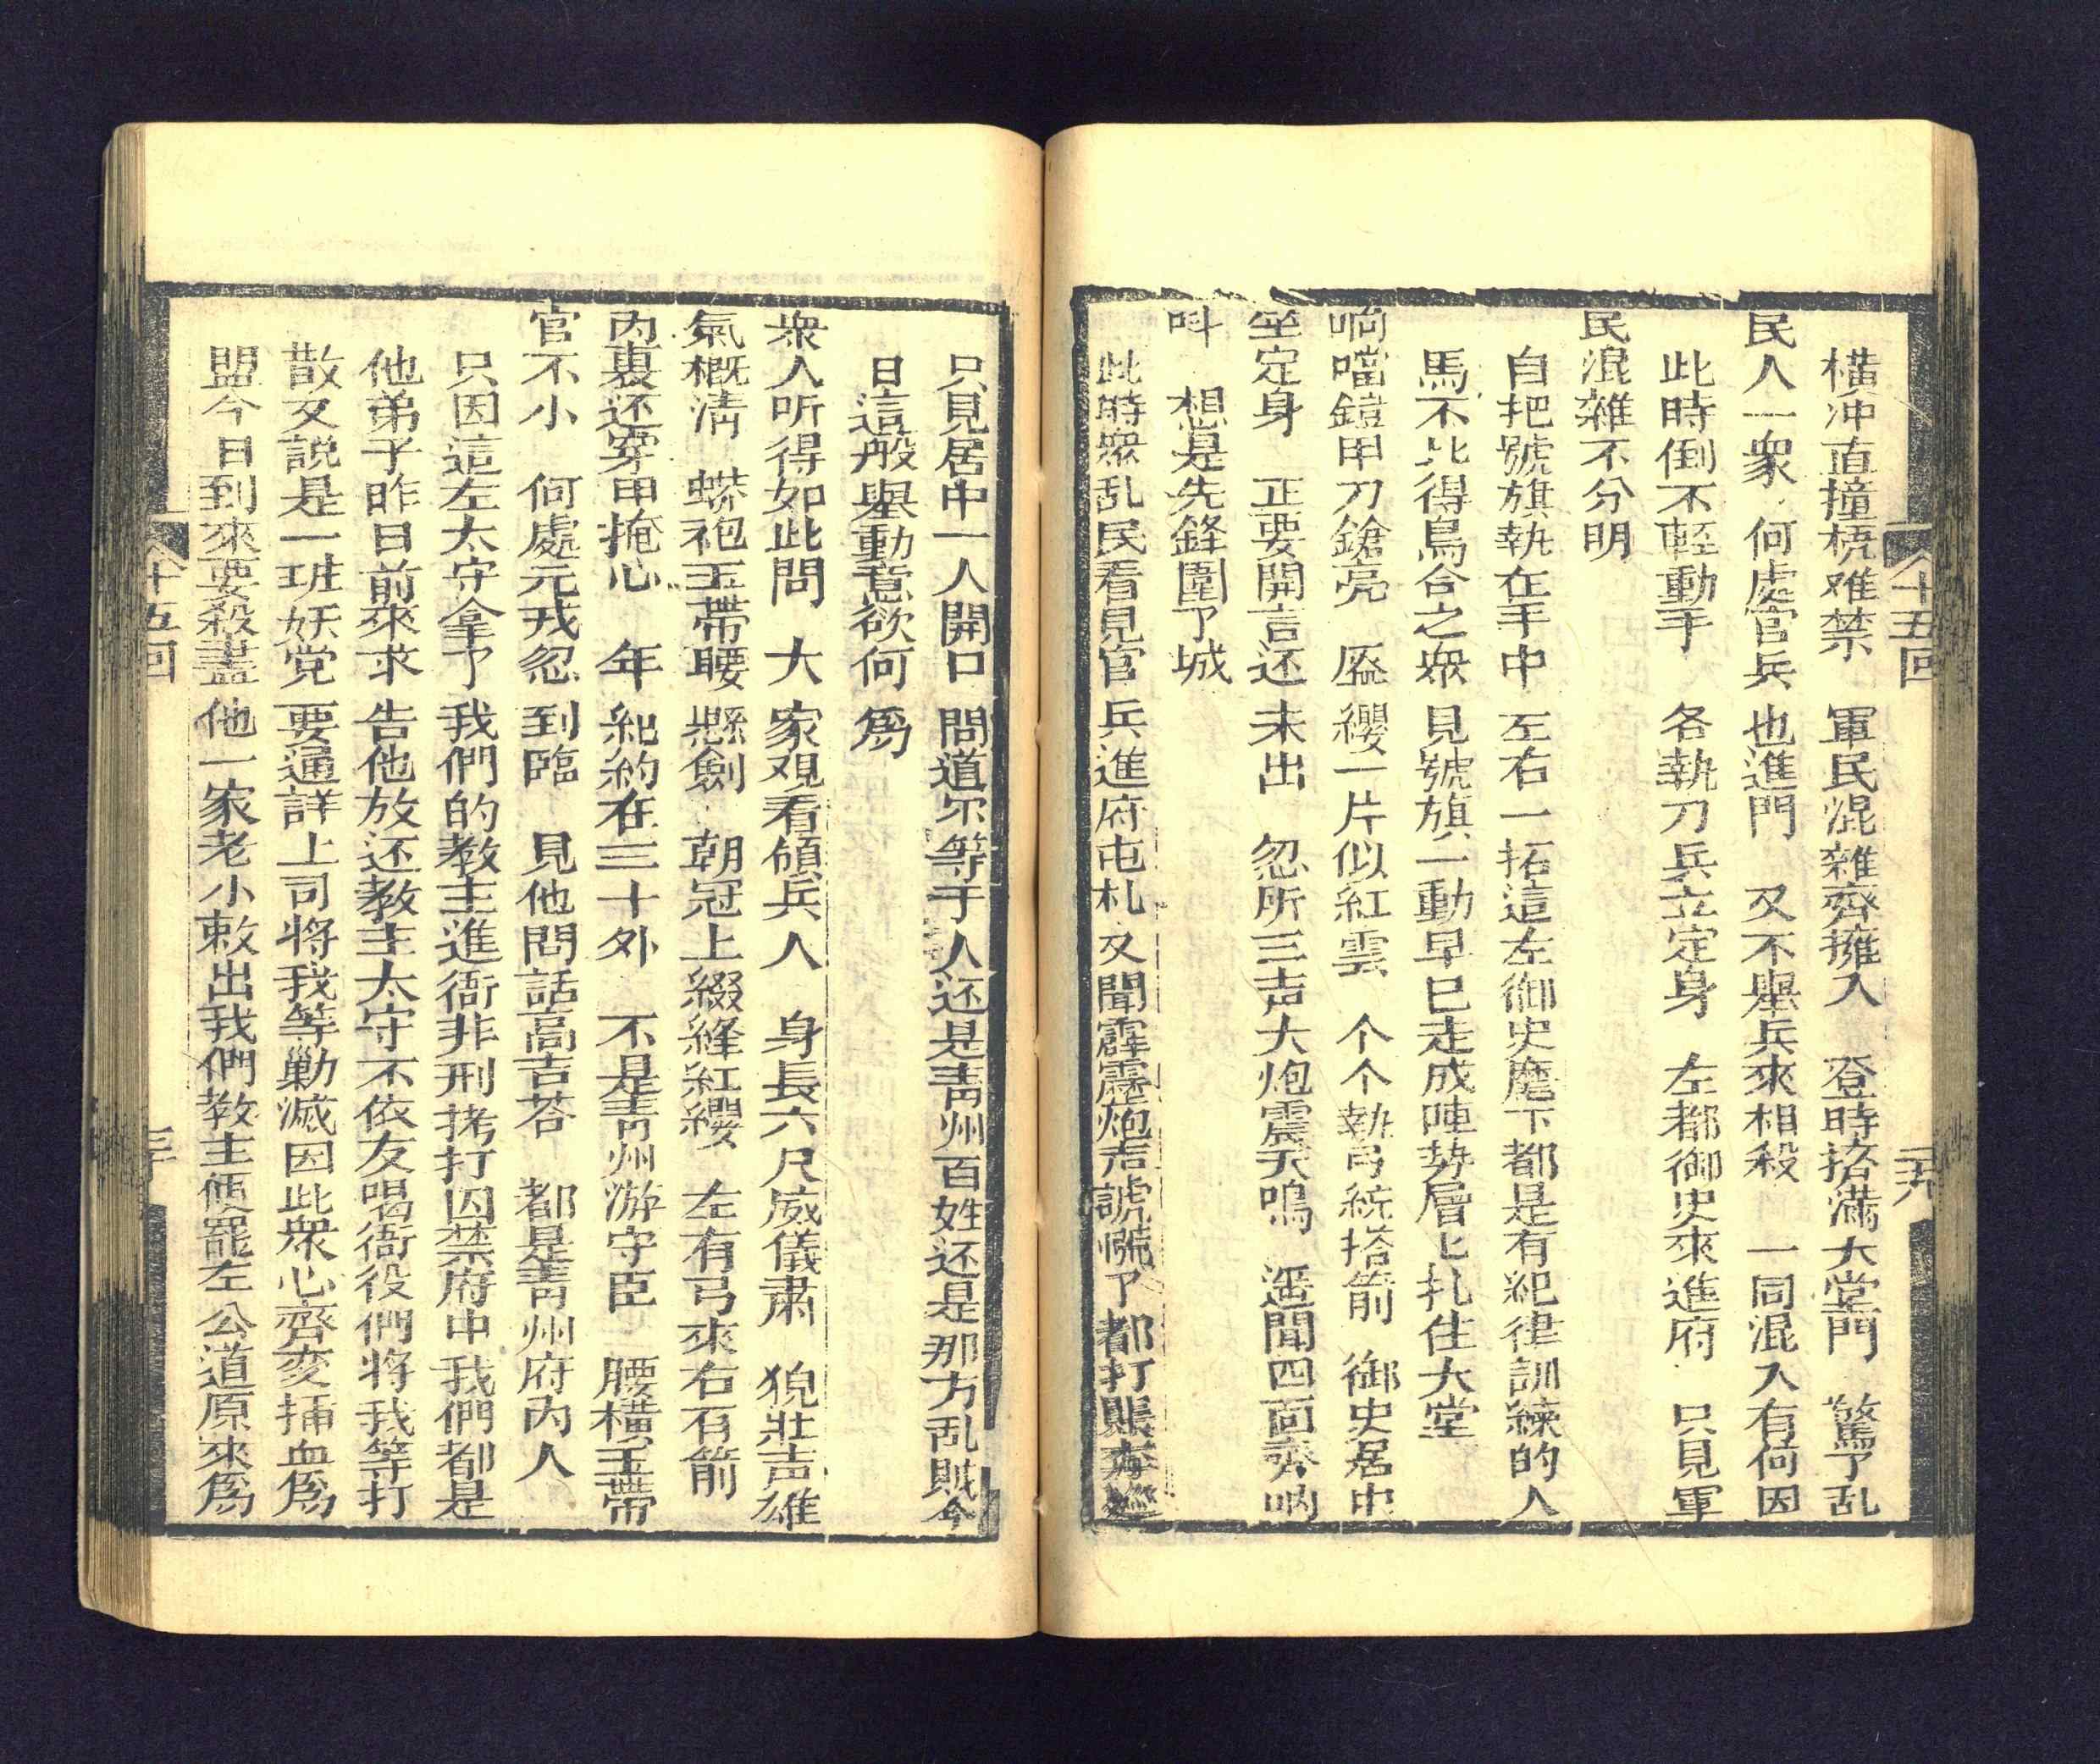 橫冲直撞梳难禁　軍民混雜齊擁入　登時擠滿大堂門　驚了乱
民人一衆　何處官兵也進門　又不舉兵來相殺　一同混入有何因
此時倒不輕動手　各執刀兵立定身　左都御史來進府　只見軍
民混雜不分明
自把號旗執在手中　左右一拓這左御史麾下都是有紀律訓練的人
馬不比得烏合之衆見號旗一動早已走成陣势層匕扎住大堂
响噹鎧甲刀鎗亮　盔纓一片似紅雲　个个執弓統搭箭　御史居中
坐定身　正要開言还未出　忽所三声大炮震天鳴　遥聞四面齊吶
呌　想是先鋒圍了城
此時衆乱民看見官兵進府屯札又聞霹靂炮声諕慌了都打賬奔逃
十五回
只見居中一人開口問道尔等于人还是青州百姓还是那方乱賊今
日這般舉動意欲何爲
衆人听得如此問　大家观看領兵人　身長六尺威儀肅　貌壯声雄
氣概清　蟒袍玉帶腰懸劍　朝冠上綴絳紅纓　左有弓來右有箭
內裏还穿甲掩心　年紀約在三十外　不是青州游守臣　腰橫玉帶
官不小　何處元戎忽到臨　見他問話高吉荅　都是青州府內人
只因這左太守拿了我們的教主進衙非刑拷打囚禁府中我們都是
他弟子昨日前來求告他放还教主太守不依友喝衙役們将我等打
散又説是一班妖党要通詳上司将我等勦滅因此衆心齊変揷血爲
盟今日到來要殺盡他一家老小敕出我們教主便罷左公道原來爲
十五回